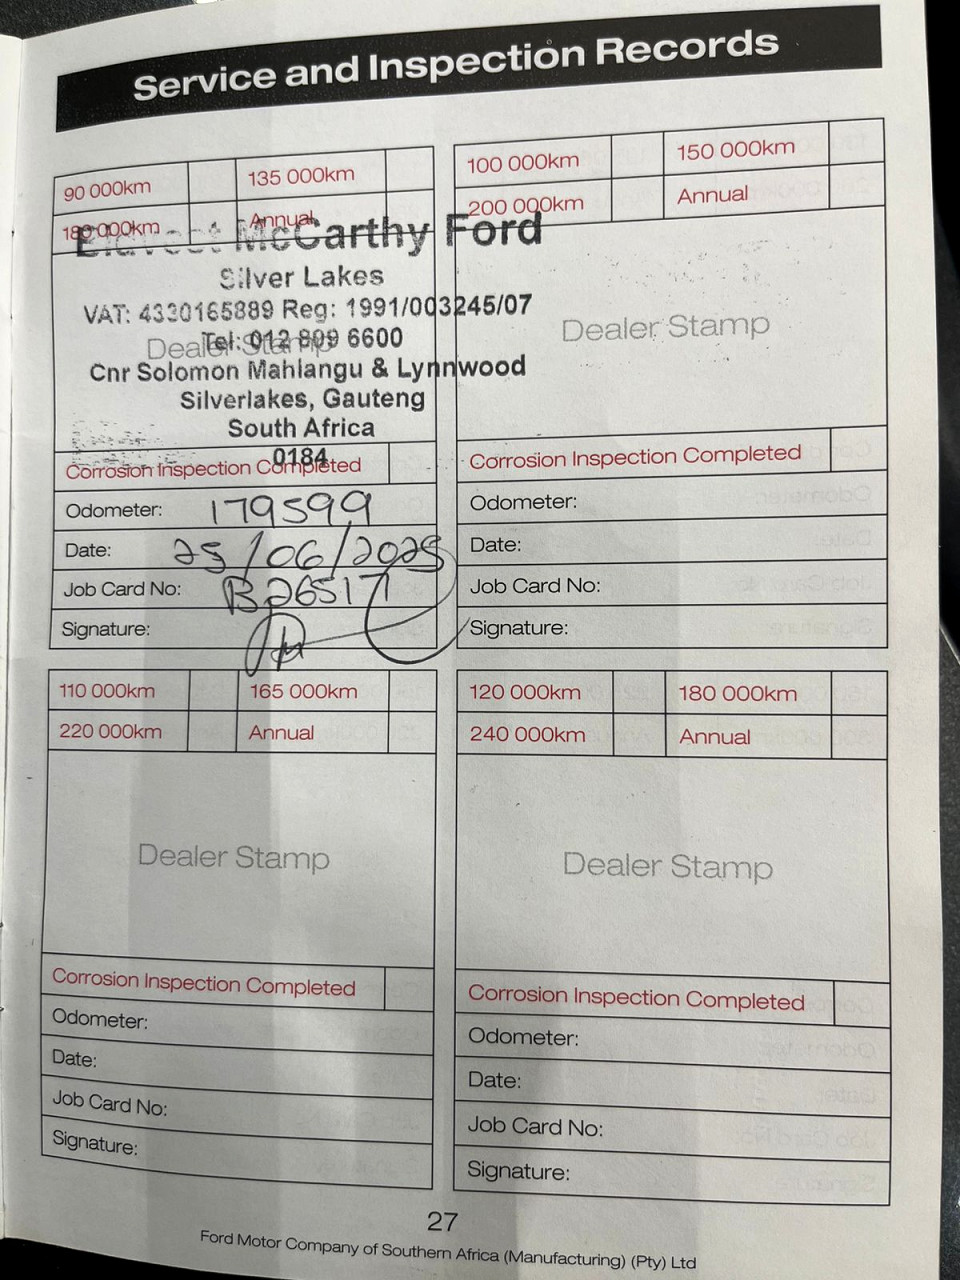 Service and Inspection Records
90 000km 135 000km
180 000km Annual
McCarthy Ford
Silver Lakes
VAT: 4330165889 Reg: 1991/003245/07
Tel: 012 809 6600
Dealer Stamp
Cnr Solomon Mahlangu & Lynnwood
Silverlakes, Gauteng
South Africa
0184
Corrosion Inspection Completed
Odometer: 179599
Date: 25/06/2025
Job Card No: B26517
Signature:
100 000km 150 000km
200 000km Annual
Dealer Stamp
Corrosion Inspection Completed
Odometer:
Date:
Job Card No:
Signature:
110 000km 165 000km
220 000km Annual
Dealer Stamp
Corrosion Inspection Completed
Odometer:
Date:
Job Card No:
Signature:
120 000km 180 000km
240 000km Annual
Dealer Stamp
Corrosion Inspection Completed
Odometer:
Date:
Job Card No:
Signature:
27
Ford Motor Company of Southern Africa (Manufacturing) (Pty) Ltd